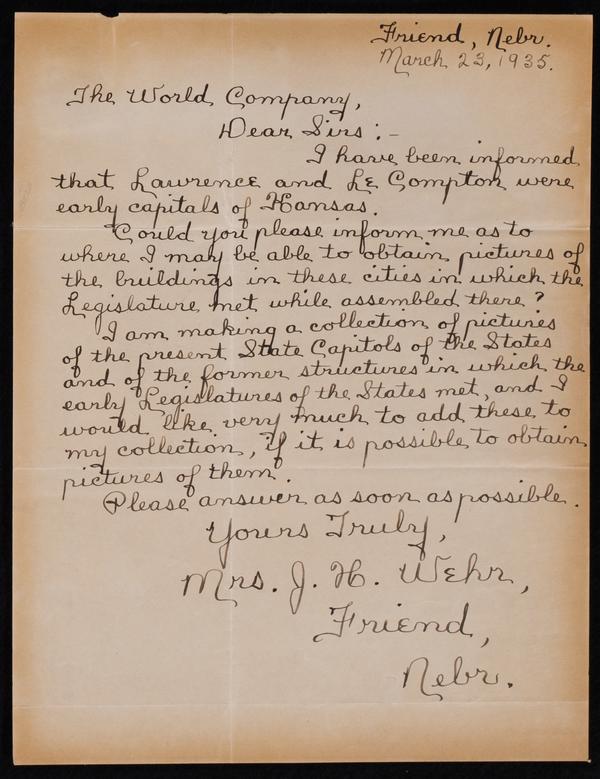 Friend, Nebr.
March 23, 1935.
The World Company,
Dear Sirs :-
I have been informed
that Lawrence and Le Compton were
early capitals of Kansas.
Could you please inform me as to
where I may be able to obtain pictures of
the buildings in these cities in which the
Legislature met while assembled there?
I am making a collection of pictures
of the present State Capitols of the States
and of the former structures in which the
early Legislatures of the States met, and I
would like very much to add these to
my collection, if it is possible to obtain
pictures of them.
Please answer as soon as possible.
Yours Truly,
Mrs. J. H. Wehr,
Friend,
Nebr.